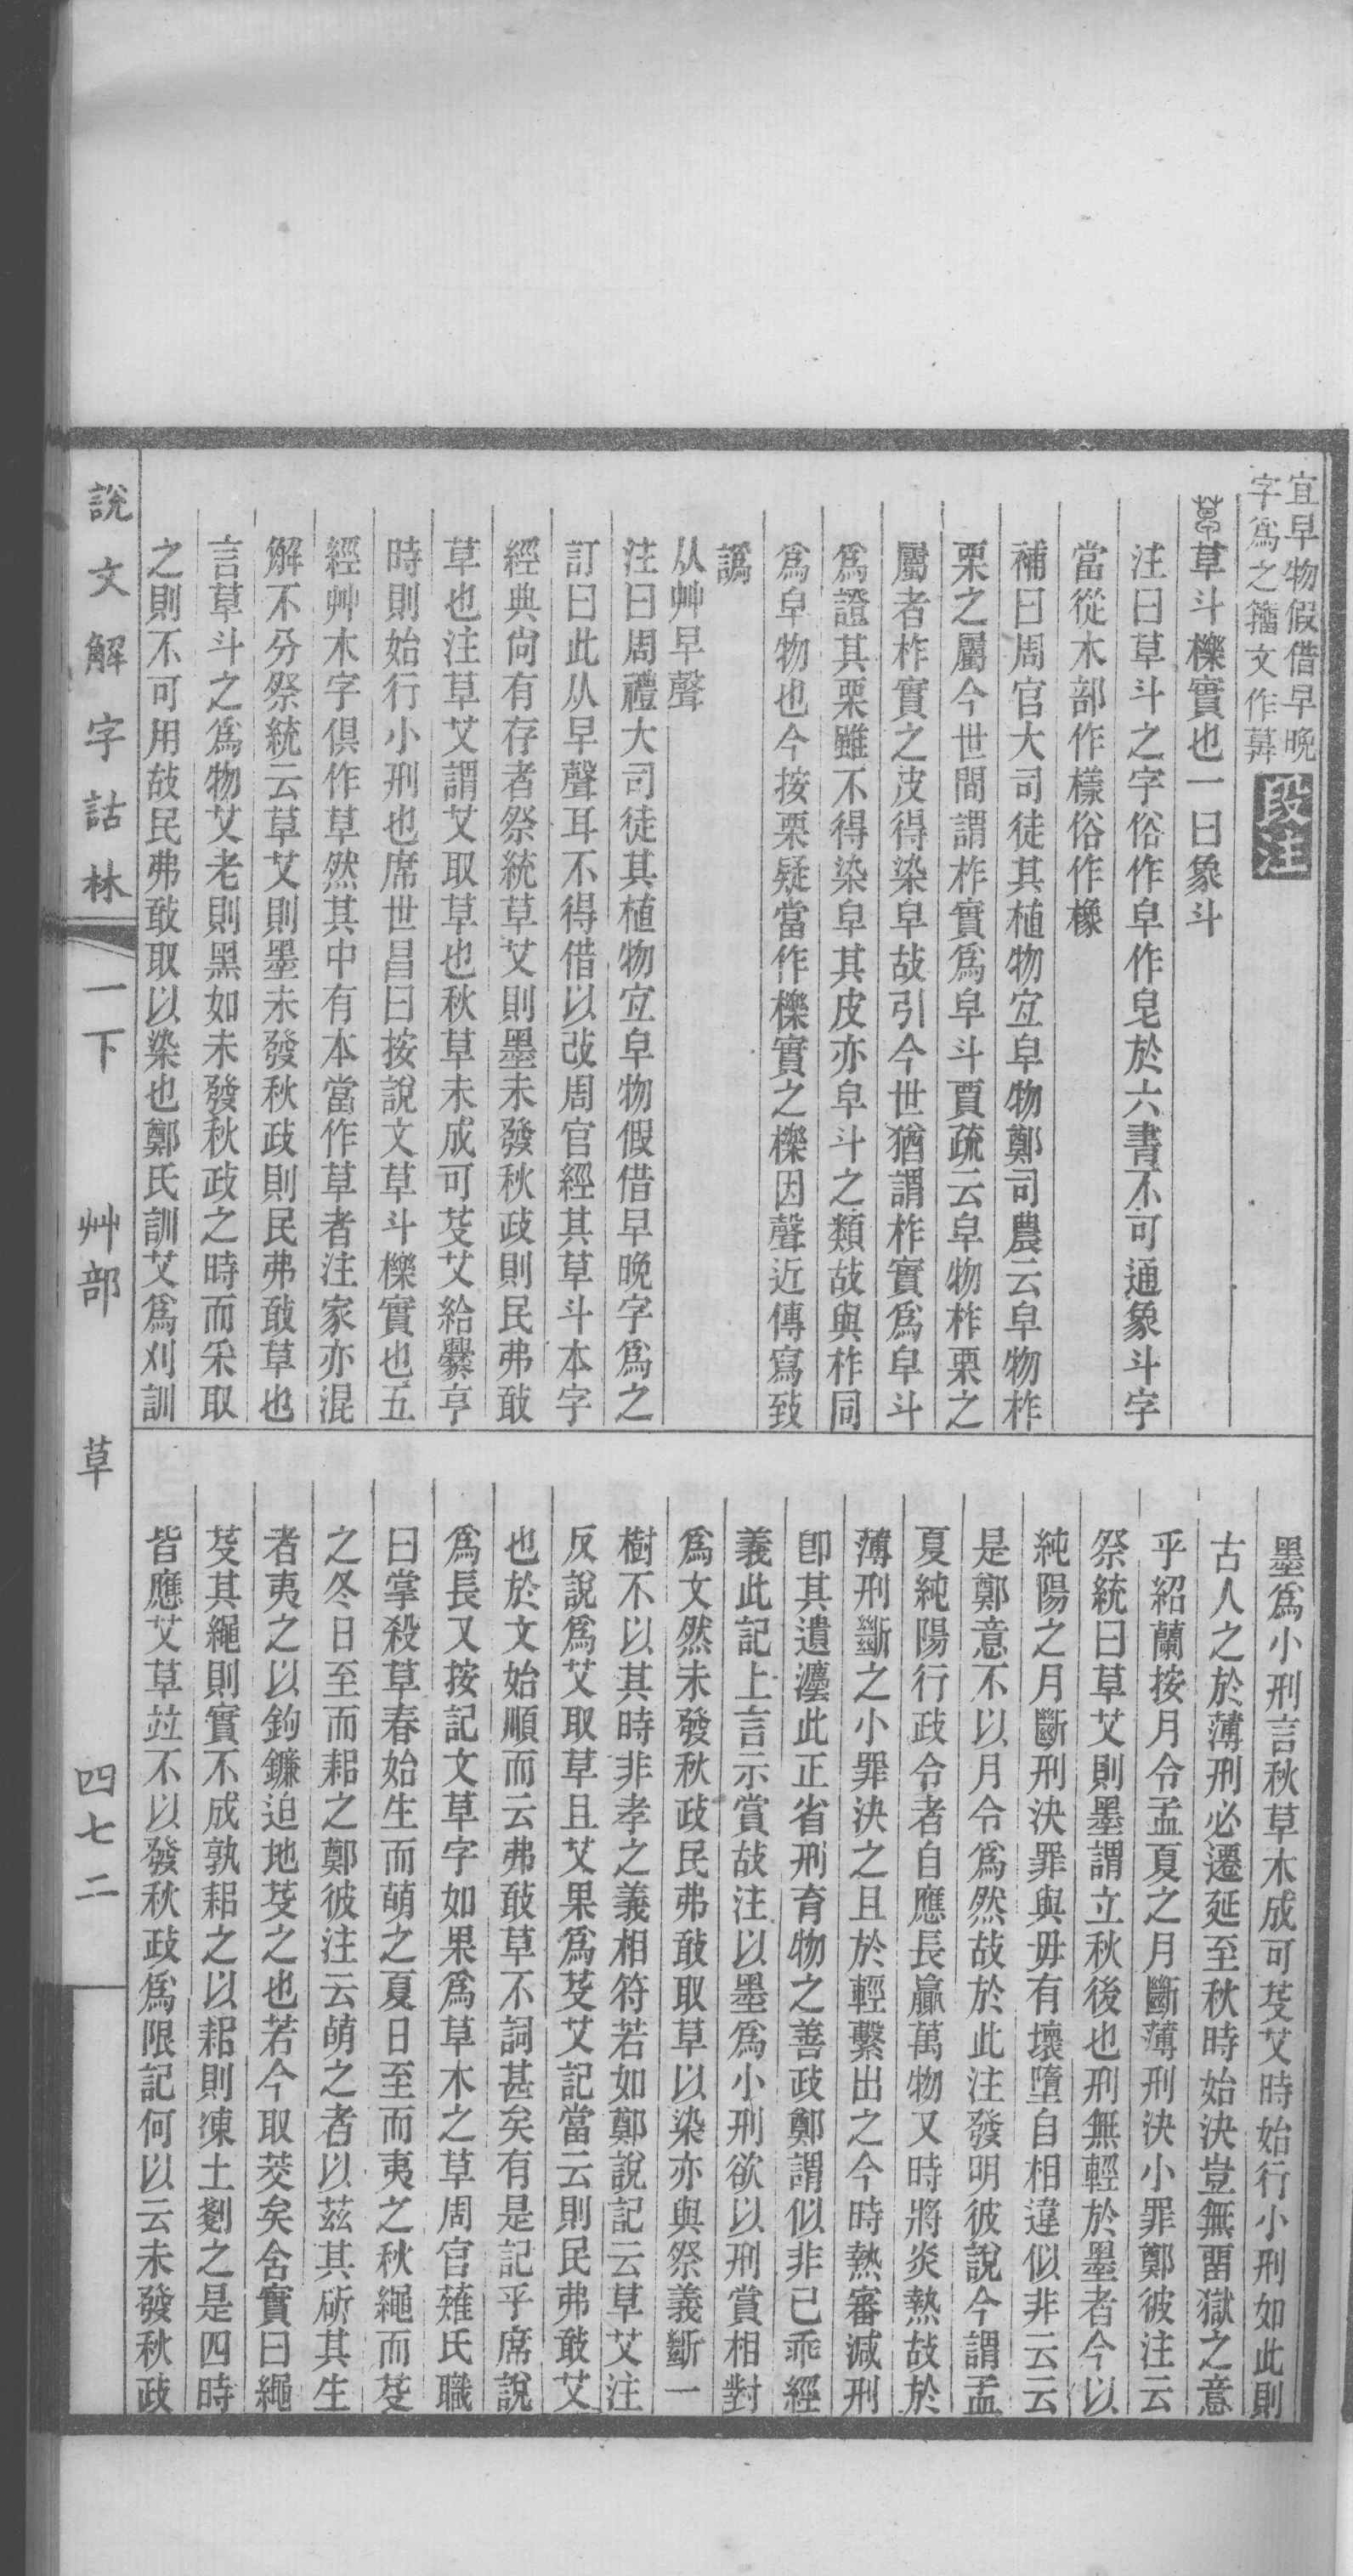 宜早物假借早晚
字爲之籒文作𦾓
段注
草斗櫟實也一曰象斗
注曰草斗之字俗作皁作皂於六書不可通象斗字
當從木部作樣俗作橡
補曰周官大司徒其植物宜皁物鄭司農云皁物柞
栗之屬今世間謂柞實爲皁斗賈疏云皁物柞栗之
屬者柞實之皮得染皁故引今世猶謂柞實爲皁斗
爲證其栗雖不得染皁其皮亦皁斗之類故與柞同
爲皁物也今按栗疑當作櫟實之櫟因聲近傳寫致
譌
从艸早聲
注曰周禮大司徒其植物宜皁物假借早晚字爲之
訂曰此从早聲耳不得借以改周官經其草斗本字
經典尙有存者祭統草艾則墨未發秋政則民弗敢
草也注草艾謂艾取草也秋草未成可芟艾給爨亨
時則始行小刑也席世昌曰按說文草斗櫟實也五
經艸木字俱作草然其中有本當作草者注家亦混
解不分祭統云草艾則墨未發秋政則民弗敢草也
言草斗之爲物艾老則黑如未發秋政之時而采取
之則不可用故民弗敢取以染也鄭氏訓艾爲刈訓
墨爲小刑言秋草木成可芟艾時始行小刑如此則
古人之於薄刑必遷延至秋時始決豈無畱獄之意
乎紹蘭按月令孟夏之月斷薄刑決小罪鄭彼注云
祭統曰草艾則墨謂立秋後也刑無輕於墨者今以
純陽之月斷刑決罪與毋有壞墮自相違似非云云
是鄭意不以月令爲然故於此注發明彼說今謂孟
夏純陽行政令者自應長贏萬物又時將炎熱故於
薄刑斷之小罪決之且於輕繫出之今時熱審減刑
卽其遺灋此正省刑育物之善政鄭謂似非已乖經
義此記上言示賞故注以墨爲小刑欲以刑賞相對
爲文然未發秋政民弗敢取草以染亦與祭義斷一
樹不以其時非孝之義相符若如鄭說記云草艾注
反說爲艾取草且艾果爲芟艾記當云則民弗敢艾
也於文始順而云弗敢草不詞甚矣有是記乎席說
爲長又按記文草字如果爲草木之草周官薙氏職
曰掌殺草春始生而萌之夏日至而夷之秋繩而芟
之冬日至而耜之鄭彼注云萌之者以茲其斫其生
者夷之以鉤鐮迫地芟之也若今取茭矣含實曰繩
芟其繩則實不成孰耜之以耜則凍土剗之是四時
皆應艾草竝不以發秋政爲限記何以云未發秋政
說文解字詁林
一下
艸部
草
四七二